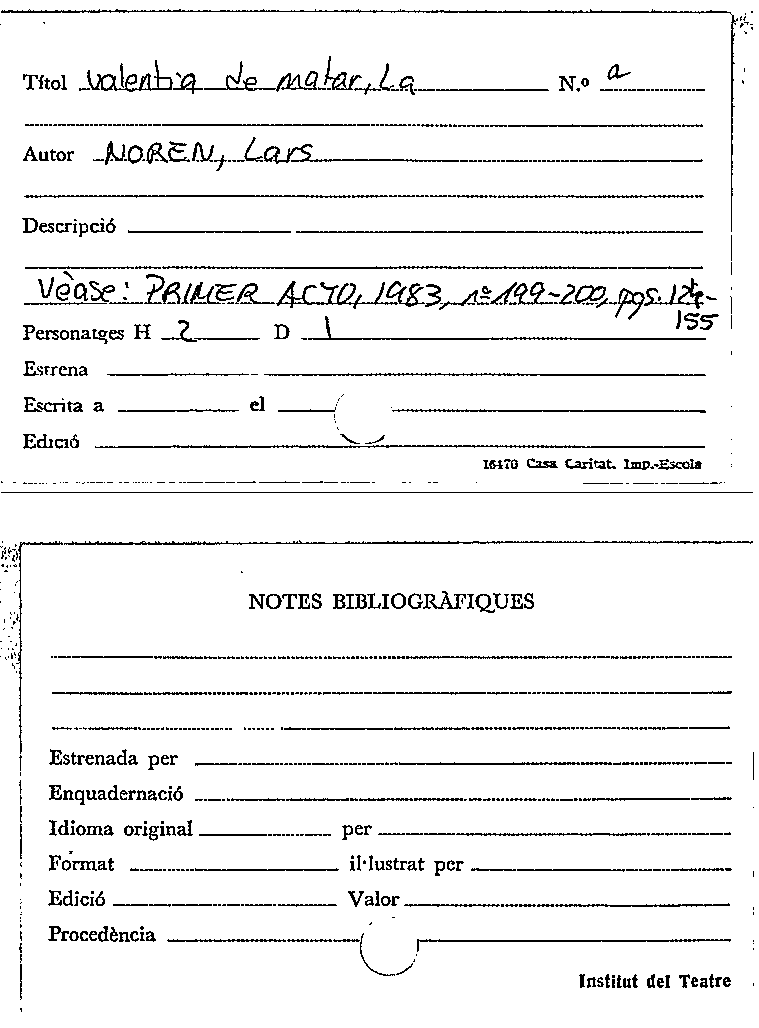 Títol Valentia de matar, La N.º a
Autor NOREN, Lars
Descripció
Vèase: PRIMER ACTO, 1983, nº 199-200, pgs. 129-
155
Personatges H 2 D 1
Estrena
Escrita a el
Edició
16470 Casa Caritat. Imp.-Escola
NOTES BIBLIOGRÀFIQUES
Estrenada per
Enquadernació
Idioma original per
Format il·lustrat per
Edició Valor
Procedència
Institut del Teatre